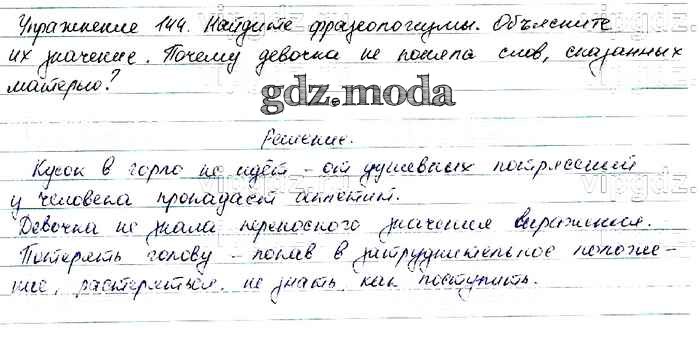 Упражнение 144. Найдите фразеологизмы. Объясните
их значение. Почему девочка не поняла слов, сказанных
матерью?
gdz.moda
Решение.
Кусок в горло не идёт - от душевных потрясений
у человека пропадает аппетит.
Девочка не знала переносного значения выражения.
Потерять голову - попав в затруднительное положе-
ние, растеряться, не знать, как поступить.